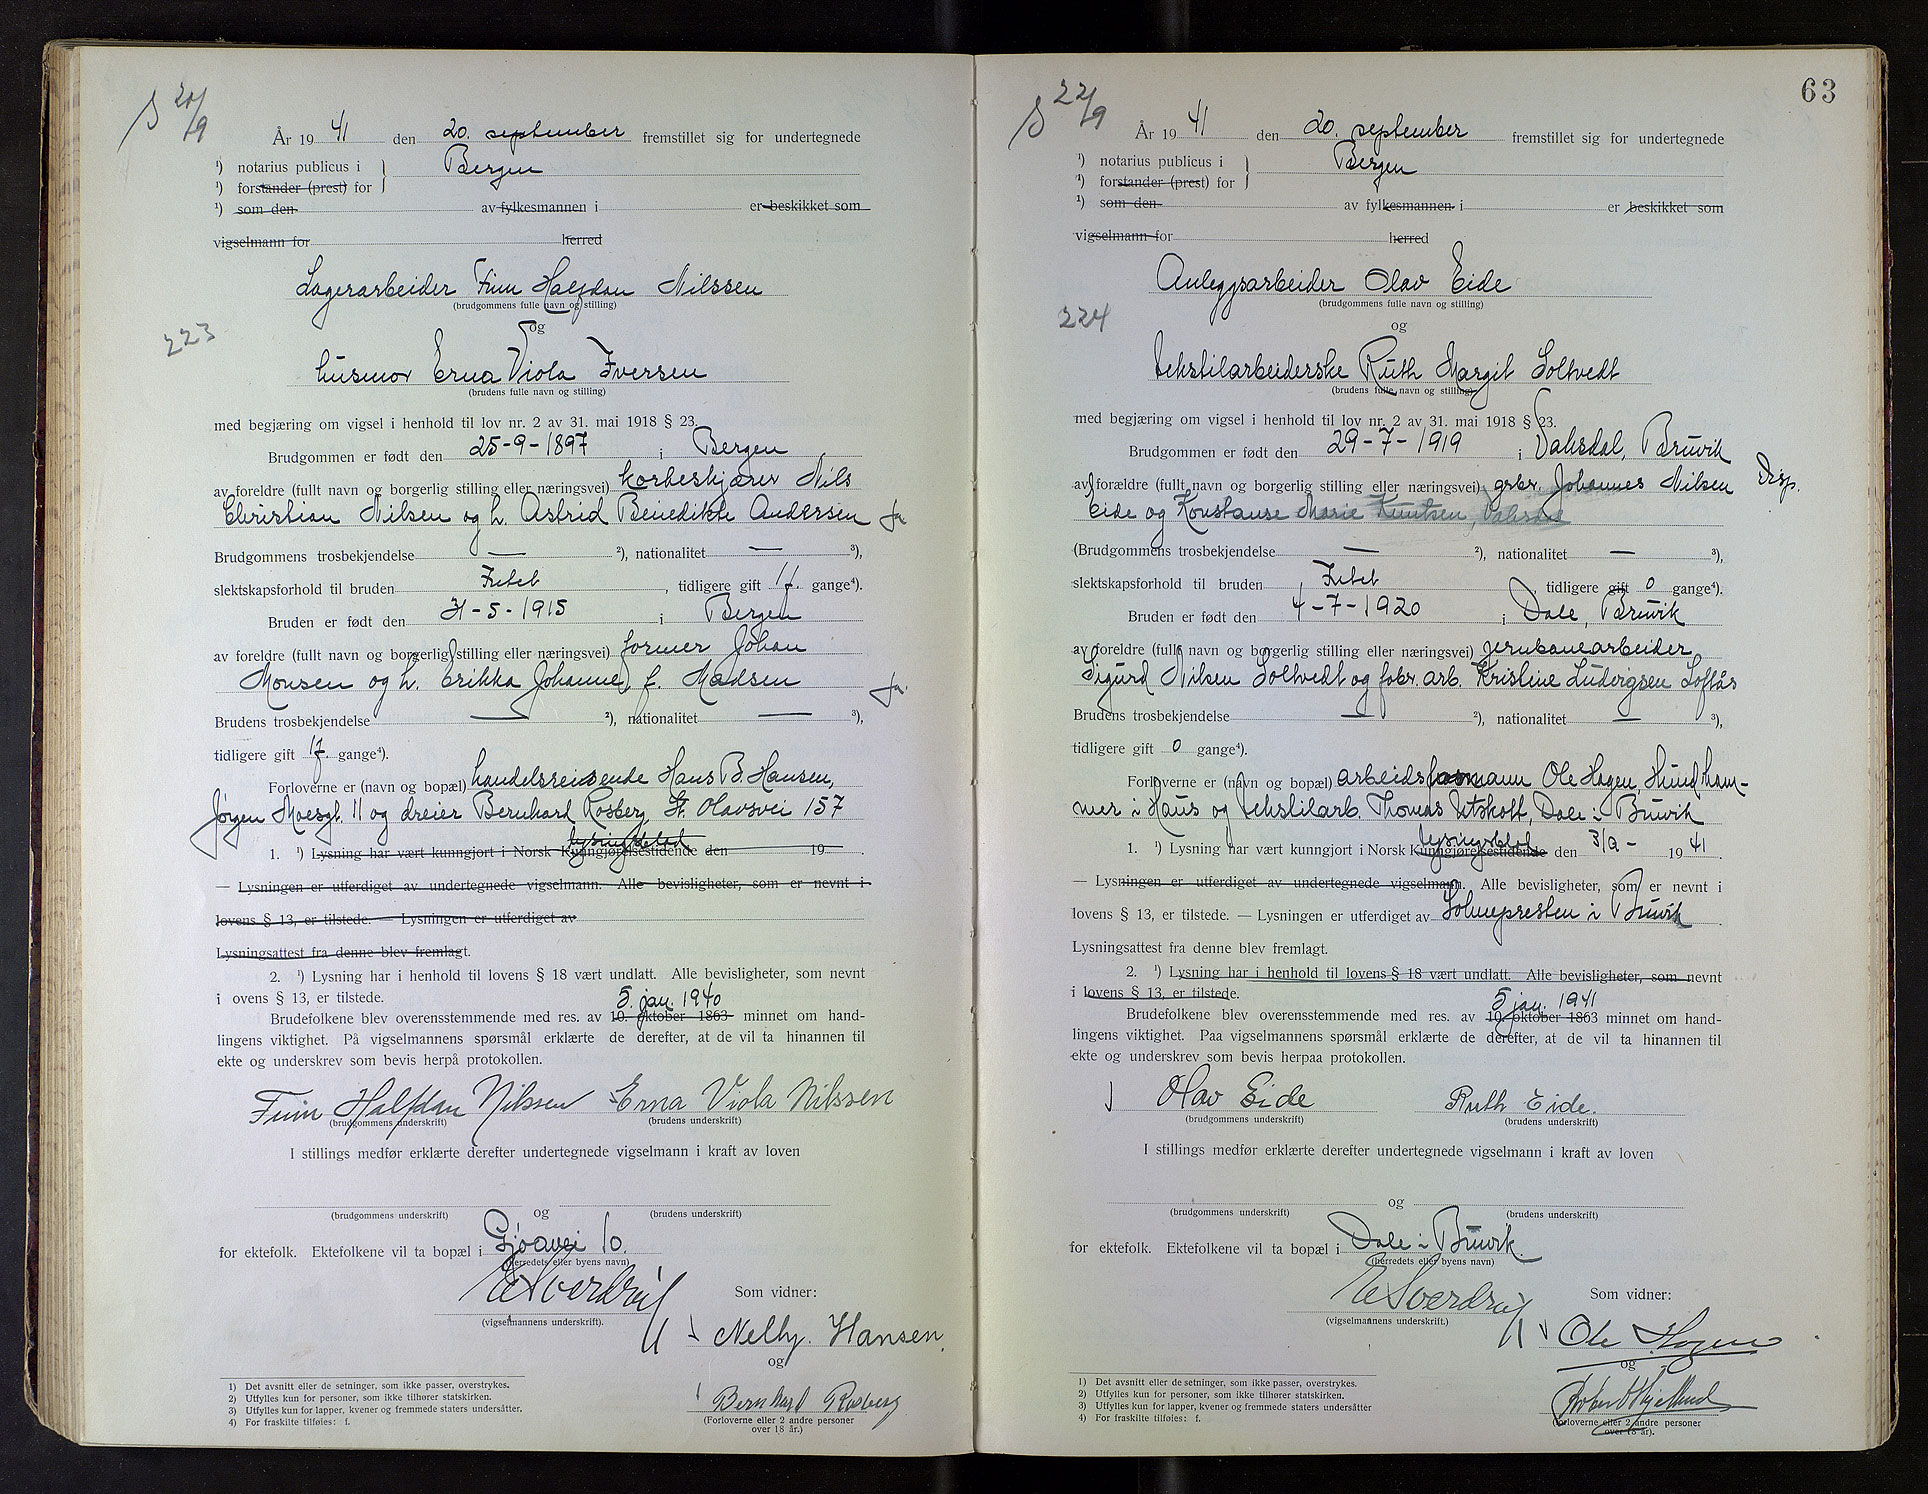 S 20/9
År 19 41 den 20. september fremstillet sig for undertegnede
¹) notarius publicus i } Bergen
¹) forstander (prest) for
¹) som den av fylkesmannen i er beskikket som
vigselmann for herred
Lagerarbeider Finn Halfdan Nilssen
(brudgommens fulle navn og stilling)
og
223
husmor Erna Viola Iversen
(brudens fulle navn og stilling)
med begjæring om vigsel i henhold til lov nr. 2 av 31. mai 1918 § 23.
Brudgommen er født den 25-9-1897 i Bergen
av foreldre (fullt navn og borgerlig stilling eller næringsvei) korbeskjærer Nils
Christian Nilsen og h. Astrid Benedikte Andersen Ja
Brudgommens trosbekjendelse — ²), nationalitet — ³),
slektskapsforhold til bruden Intet, tidligere gift 1 f. gange⁴).
Bruden er født den 31-5-1915 i Bergen
av foreldre (fullt navn og borgerlig stilling eller næringsvei) former Johan
Monsen og h. Erikka Johanne, f. Madsen Ja.
Brudens trosbekjendelse — ²), nationalitet — ³),
tidligere gift 1f. gange⁴).
Forloverne er (navn og bopæl) handelsreisende Hans B. Hansen,
Jørgen Moesgt. 11 og dreier Bernhard Rosberg, St. Olavsvei 157
lysingsblad
1. ¹) Lysning har vært kunngjort i Norsk Kunngjørelsestidende den 19
— Lysningen er utferdiget av undertegnede vigselmann. Alle bevisligheter, som er nevnt i
lovens § 13, er tilstede. — Lysningen er utferdiget av
Lysningsattest fra denne blev fremlagt.
2. ¹) Lysning har i henhold til lovens § 18 vært undlatt. Alle bevisligheter, som nevnt
i ovens § 13, er tilstede.
5. jan. 1940
Brudefolkene blev overensstemmende med res. av 10. oktober 1863 minnet om hand-
lingens viktighet. På vigselmannens spørsmål erklærte de derefter, at de vil ta hinannen til
ekte og underskrev som bevis herpå protokollen.
Finn Halfdan Nilssen Erna Viola Nilssen
(brudgommens underskrift) (brudens underskrift)
I stillings medfør erklærte derefter undertegnede vigselmann i kraft av loven
og
(brudgommens underskrift) (brudens underskrift)
for ektefolk. Ektefolkene vil ta bopæl i Gjøavei 10.
(herredets eller byens navn)
E Sverdrup
Som vidner:
(vigselmannens underskrift).
Nelly Hansen
og
Bernhard Rosberg
(Forloverne eller 2 andre personer
over 18 år.)
1) Det avsnitt eller de setninger, som ikke passer, overstrykes.
2) Utfylles kun for personer, som ikke tilhører statskirken.
3) Utfylles kun for lapper, kvener og fremmede staters undersåtter.
4) For fraskilte tilføies: f.
63
S 22/9
År 19 41 den 20. september fremstillet sig for undertegnede
¹) notarius publicus i } Bergen
¹) forstander (prest) for
¹) som den av fylkesmannen i er beskikket som
vigselmann for herred
Anleggsarbeider Olav Eide
(brudgommens fulle navn og stilling)
224
og
tekstilarbeiderske Ruth Margit Soltvedt
(brudens fulle navn og stilling)
med begjæring om vigsel i henhold til lov nr. 2 av 31. mai 1918 § 23.
Brudgommen er født den 29-7-1919 i Vaksdal, Bruvik
av forældre (fullt navn og borgerlig stilling eller næringsvei) grbr. Johannes Nilsen Disp.
Eide og Konstanse Marie Knutsen, Vaksdal
(Brudgommens trosbekjendelse — ²), nationalitet — ³),
slektskapsforhold til bruden Intet, tidligere gift 0 gange⁴).
Bruden er født den 4-7-1920 i Dale, Bruvik
av foreldre (fullt navn og borgerlig stilling eller næringsvei) jernbanearbeider
Sigurd Nilsen Soltvedt og fabr. arb. Kristine Ludvigsen Loftås
Brudens trosbekjendelse — ²), nationalitet — ³),
tidligere gift 0 gange⁴).
Forloverne er (navn og bopæl) arbeidsformann Ole Hagen, Hundham-
mer i Haus og tekstilarb. Thomas Utskott, Dale i Bruvik
lysingsblad
1. ¹) Lysning har vært kunngjort i Norsk Kunngjørelsestidende den 3/9 - 19 41.
— Lysningen er utferdiget av undertegnede vigselmann. Alle bevisligheter, som er nevnt i
lovens § 13, er tilstede. — Lysningen er utferdiget av Soknepresten i Bruvik
Lysningsattest fra denne blev fremlagt.
2. ¹) Lysning har i henhold til lovens § 18 vært undlatt. Alle bevisligheter, som nevnt
i lovens § 13, er tilstede.
5 jan. 1941
Brudefolkene blev overensstemmende med res. av 10. oktober 1863 minnet om hand-
lingens viktighet. Paa vigselmannens spørsmål erklærte de derefter, at de vil ta hinannen til
ekte og underskrev som bevis herpaa protokollen.
Olav Eide Ruth Eide.
(brudgommens underskrift) (brudens underskrift)
I stillings medfør erklærte derefter undertegnede vigselmann i kraft av loven
og
(brudgommens underskrift) (brudens underskrift)
for ektefolk. Ektefolkene vil ta bopæl i Dale i Bruvik.
(herredets eller byens navn)
E Sverdrup
Som vidner:
(vigselmannens underskrift.)
Ole Hagen
og
(Forloverne eller 2 andre personer
over 18 år).
1) Det avsnitt eller de setninger, som ikke passer, overstrykes.
2) Utfylles kun for personer, som ikke tilhører statskirken.
3) Utfylles kun for lapper, kvener og fremmede staters undersåtter
4) For fraskilte tilføies: f.